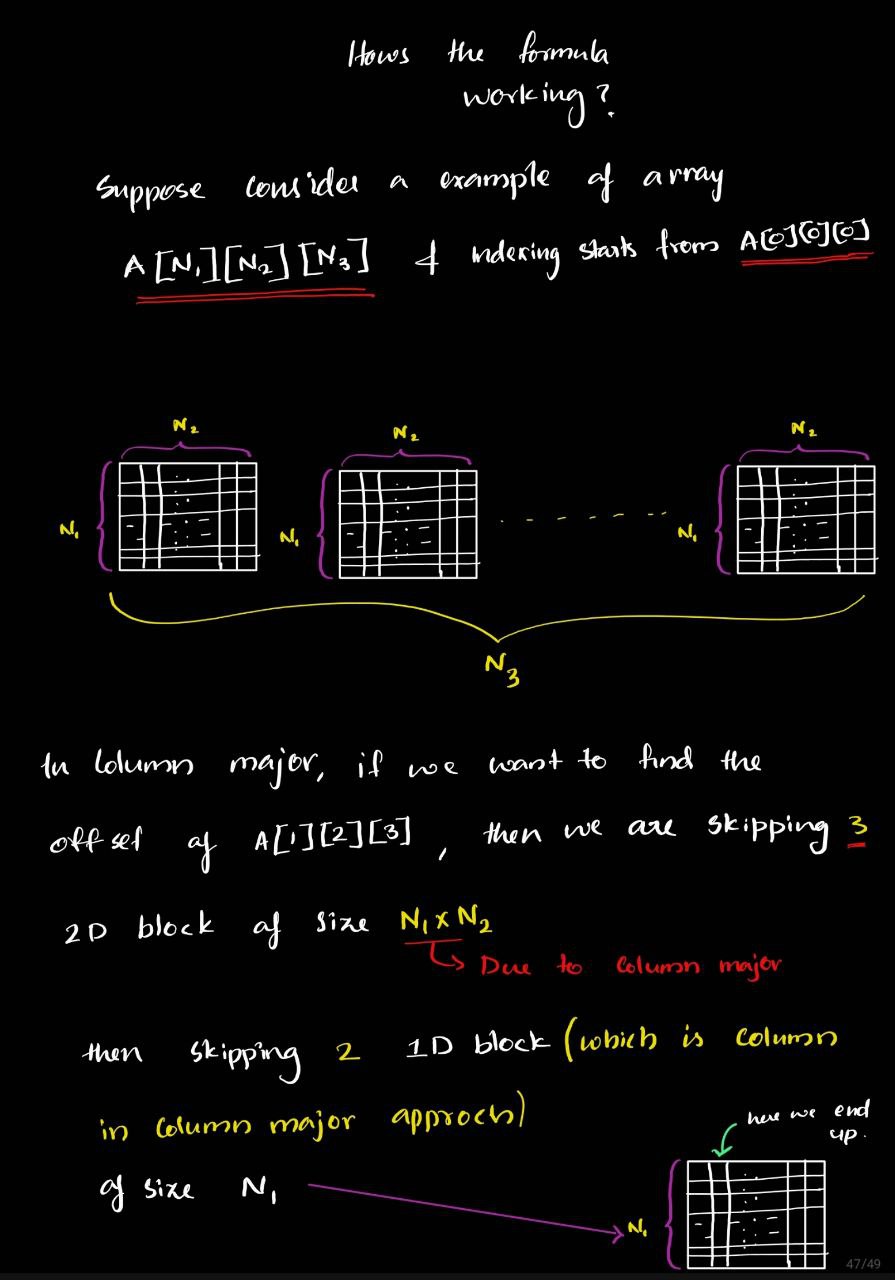 Hows the formula
working?
Suppose consider a example of array
A[N₁][N₂][N₃] & indexing starts from A[0][0][0]
N₂ N₂ N₂
N₁ N₁ N₁
N₃
In column major, if we want to find the
offset of A[1][2][3], then we are skipping 3
2D block of size N₁ x N₂
Due to column major
then skipping 2 1D block (which is column
in column major approch)
here we end
up.
of size N₁
N₁
47/49